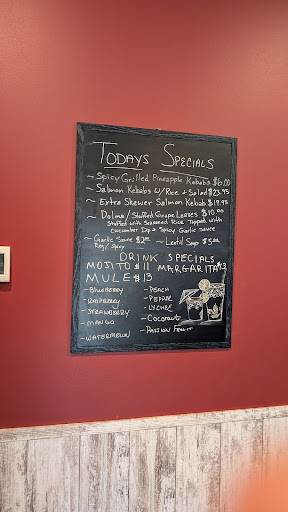 TODAYS SPECIALS
~ Spicy Grilled Pineapple Kebabs $6.00
~ Salmon Kebabs W/Rice + Salad $23.95
~ Extra Skewer Salmon Kebab $18.95
~ Dolma/Stuffed Grape Leaves $10.00
Stuffed with Seasoned Rice Topped with
Cucumber Dip + Spicy Garlic Sauce
~ Garlic Sauce $2.00 ~ Lentil Soup $5.00
Reg/Spicy
DRINK SPECIALS
MOJITO $11 MARGARITA $13
MULE $13
- Blueberry - PEACH
- RASPBERRY
- STRAWBERRY - LYCHEE
- MANGO - Coconut
- WATERMELON - Passion Fruit